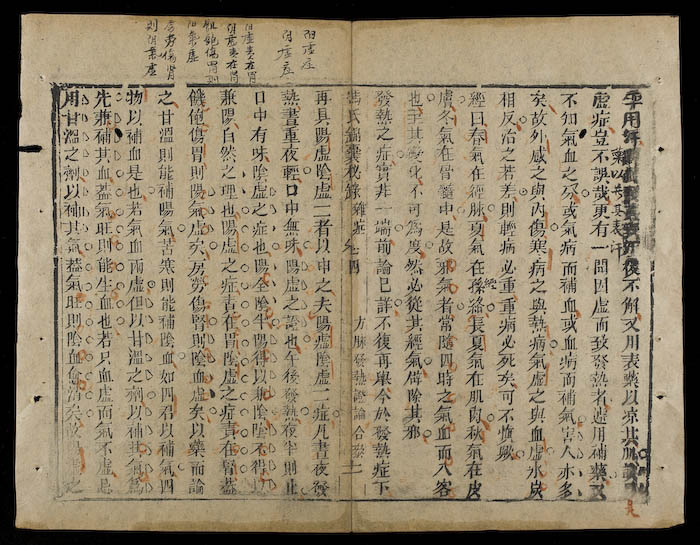 後不解又用表藥以凉其肌
虛症豈不誤哉更有一聞因虛而致發熱者遽用補藥又
不知氣血之分或氣病而補血或血病而補氣害人亦多
矣故外感之與內傷寒病之與熱病氣虛之與血虛氷炭
相反治之若差則輕病必重重病必死矣可不慎歟
經曰春氣在經脉夏氣在孫絡長夏氣在肌肉秋氣在皮
膚冬氣在骨髓中是故邪氣者常隨四時之氣血而入客
也至其變化不可為度然必從其經氣辟除其邪
發熱之症實非一端前論已詳不復再舉今於發熱症下
馮氏錦囊秘錄 雜症 方脉發熱證論合參 二
阳虚症
阴虚症
阳虚责在胃
阴虚责在腎
飽傷胃則
阳氣虚
房勞傷腎
則阴氣虚
再具陽虛陰虛二者以申之夫陽虛陰虛二症凡晝夜發
熱晝重夜輕口中無味陽虛之證也午後發熱夜半則止
口中有味陰虛之症也陽全陰半陽得以兼陰陰不得以
兼陽自然之理也陽虛之症責在胃陰虛之症責在腎蓋
饑飽傷胃則陽氣虛矣房勞傷腎則陰血虛矣以藥而論
之甘溫則能補陽氣苦寒則能補陰血如四君以補氣四
物以補血是也若氣血兩虛但以甘溫之劑以補其氣為
先兼補其血蓋氣旺則能生血也若只血虛而氣不虛忌
用甘溫之劑以補其氣蓋氣旺則陰血愈消矣故